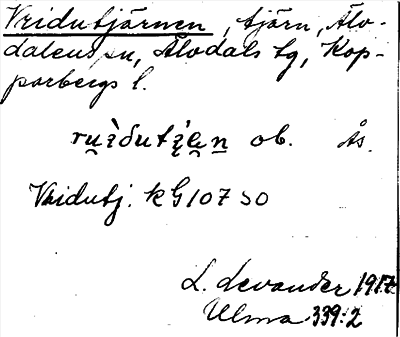 Vridutjärnen, tjärn, Älv-
dalens sn, Älvdals tg, Kop-
parbergs l.
ob. Ås.
Vridutj. kG 107 SO
L. Levander 1917
Ulma 339:2